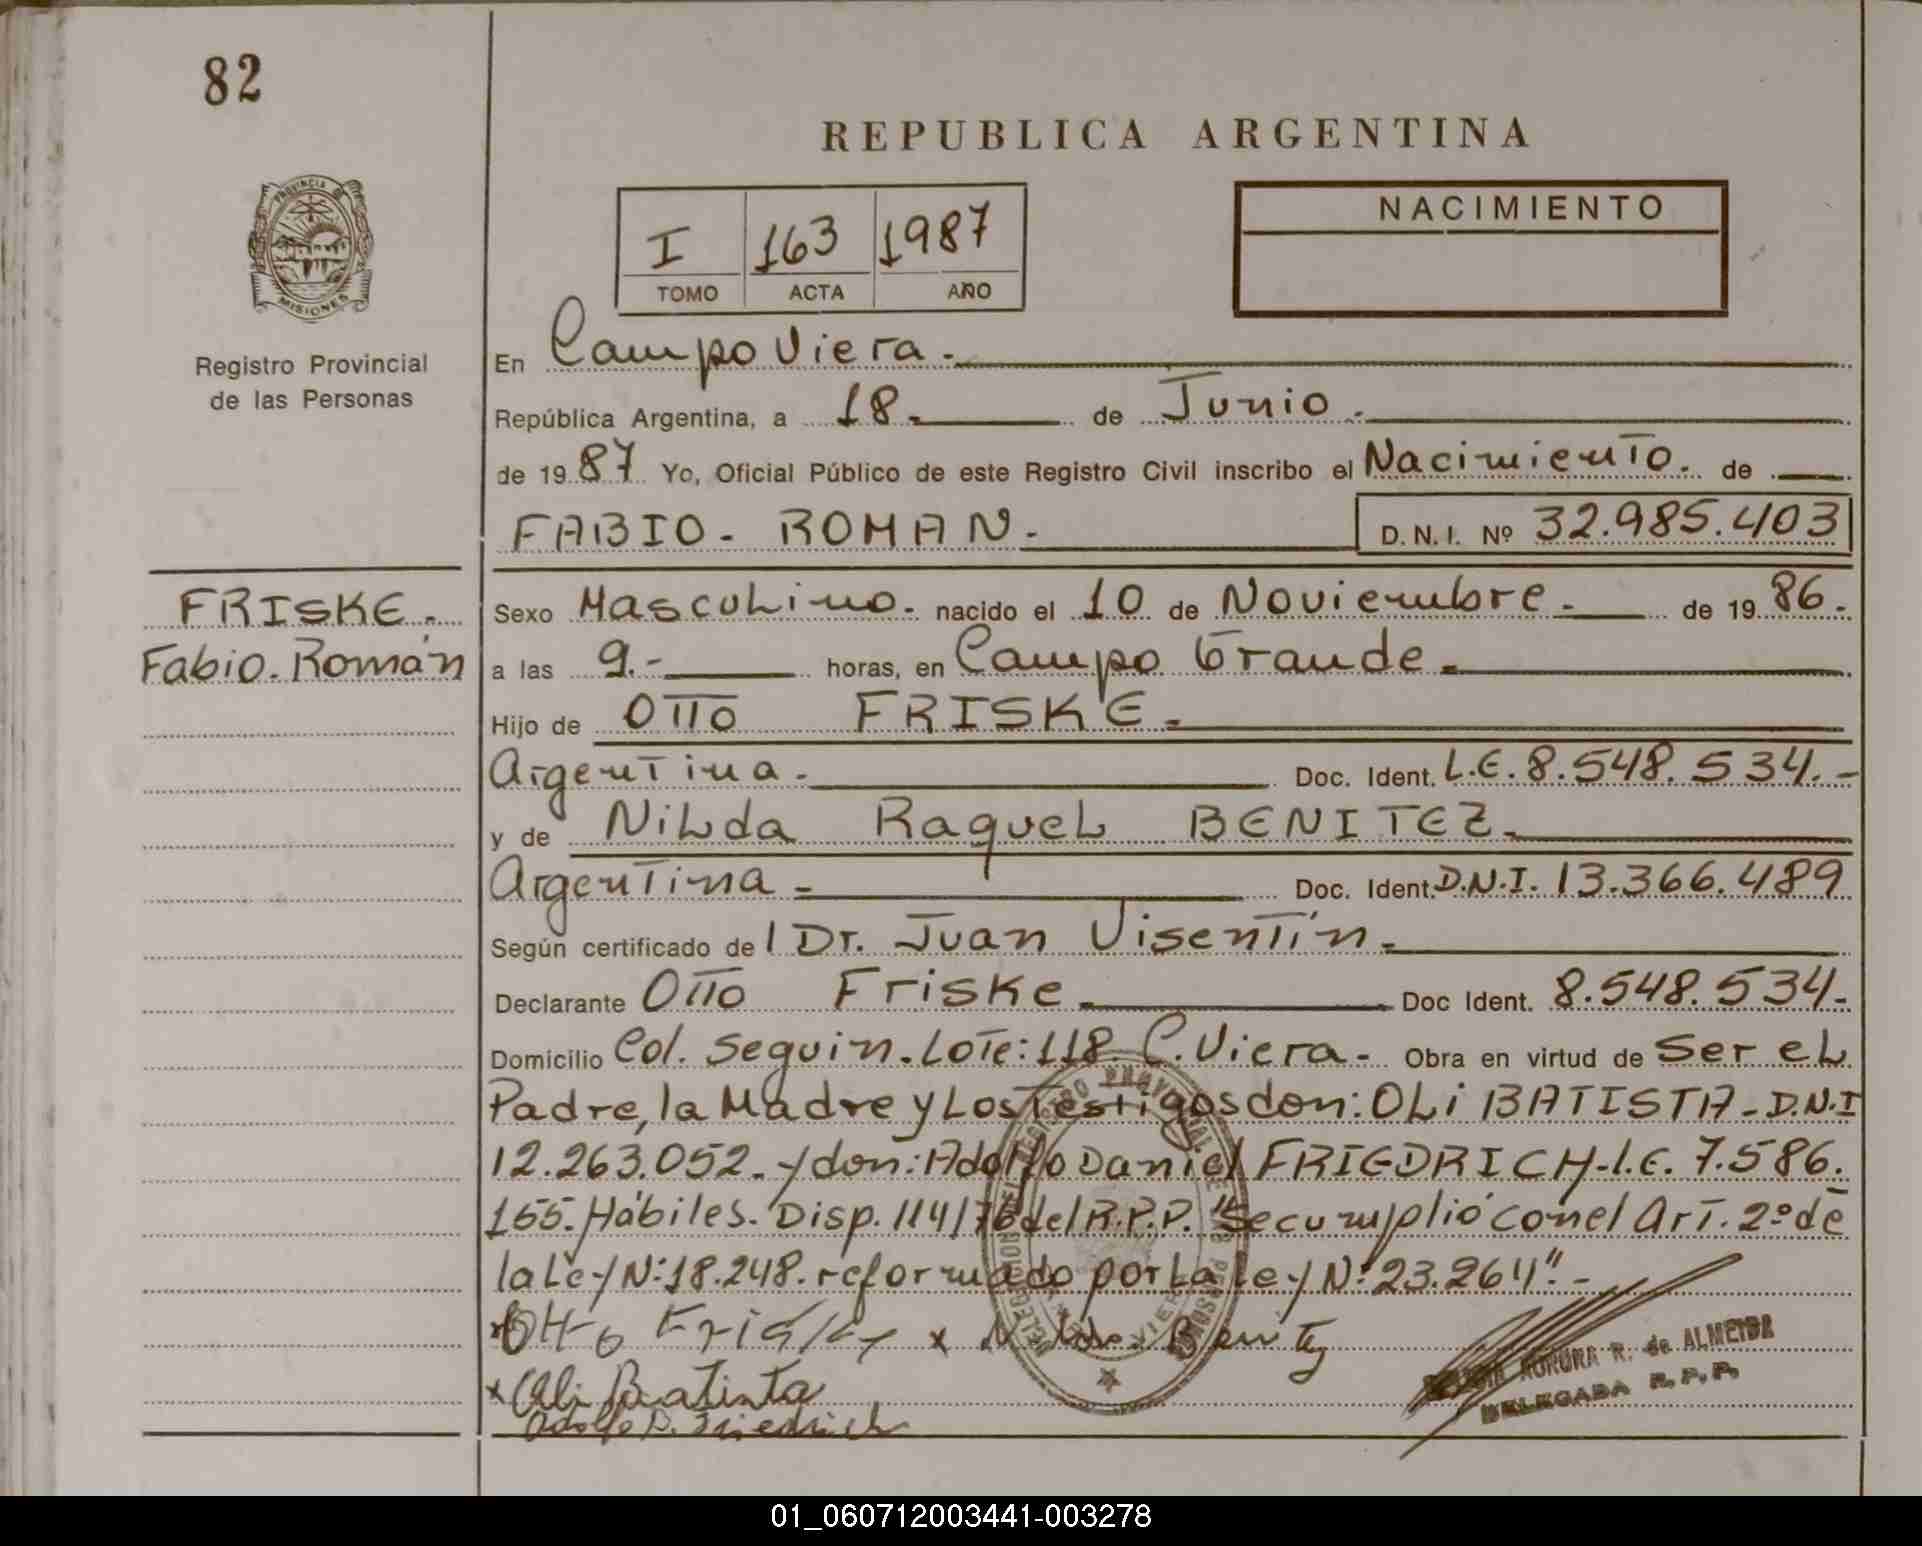 82
REPUBLICA ARGENTINA
PROVINCIA DE
MISIONES
Registro Provincial
de las Personas
I 163 1987
TOMO ACTA AÑO
NACIMIENTO
En Campo Viera.
República Argentina, a 18. de Junio.
de 19 87 Yo, Oficial Público de este Registro Civil inscribo el Nacimiento. de
FABIO. ROMAN. D. N. I. Nº 32.985.403
FRISKE.
Fabio. Román
Sexo Masculino. nacido el 10 de Noviembre. de 19 86.
a las 9.- horas, en Campo Grande.
Hijo de Otto FRISKE.
Argentina. Doc. Ident. L.E. 8.548.534.-
y de Nilda Raquel BENITEZ.
Argentina - Doc. Ident. D.N.I. 13.366.489
Según certificado del Dr. Juan Visentín.
Declarante Otto Friske. Doc Ident. 8.548.534-
Domicilio Col. Seguin. Lote: 118. C. Viera. Obra en virtud de Ser el
Padre, la Madre y Los Testigos don: OLi BATISTA - D.N.I
12.263.052. y don: Adolfo Daniel FRIEDRICH - l.E. 7.586.
155. Hábiles. Disp. 114/76 del R.P.P. "Se cumplió con el Art. 2º de
la Ley N: 18.248. reformado por La ley N: 23.264".-
x Otto Friske x Nilda Benitez
x Oli Batista
Adolfo D. Friedrich
AURORA R. de ALMEIDA
DELEGADA R. P. P.
01_060712003441-003278